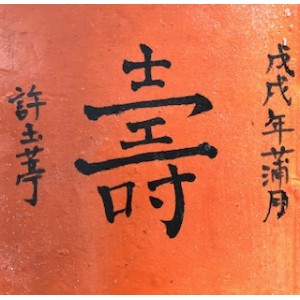 戊戌年蒲月
壽
許玉葶